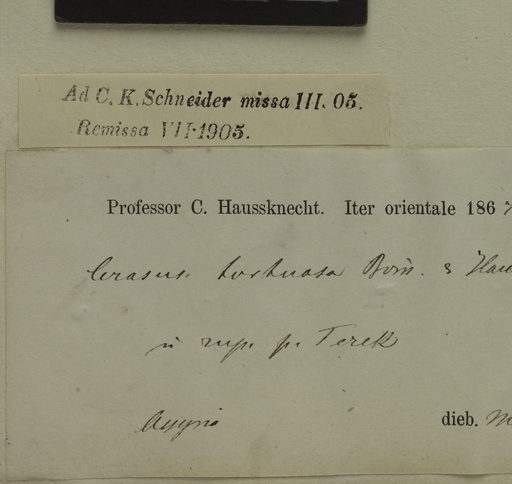 Ad C. K. Schneider missa III. 05.
Remissa VII·1905.
Professor C. Haussknecht. Iter orientale 186
Cerasus tortuosa Boiss. & Hau
in rup. pr. Terek
Assyria
dieb. M